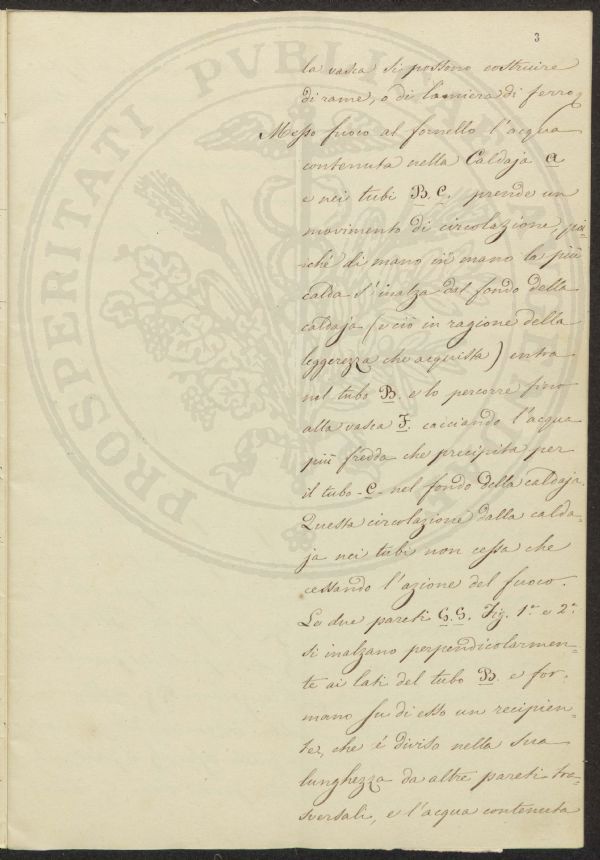 3
la vasca si possono costruire
di rame, o di lamiera di ferro,
Messo fuoco al fornello l'acqua
contenuta nella Caldaja a
e nei tubi B. C. prende un
movimento di circolazione, poi
chè di mano in mano la più
calda s'inalza dal fondo della
caldaja (e ciò in ragione della
leggerezza che acquista) entra
nel tubo B. e lo percorre fino
alla vasca F. cacciando l'acqua
più fredda che precipita per
il tubo - C - nel fondo della caldaja.
Questa circolazione dalla calda-
ja nei tubi non cessa che
cessando l'azione del fuoco.
Le due pareti G. G. Fig. 1a e 2a
si inalzano perpendicolarmen-
te ai lati del tubo B. e for-
mano su di esso un recipien-
te, che é diviso nella sua
lunghezza da altre pareti tra-
sversali, e l'acqua contenuta
PROSPERITATI PVBLICAE